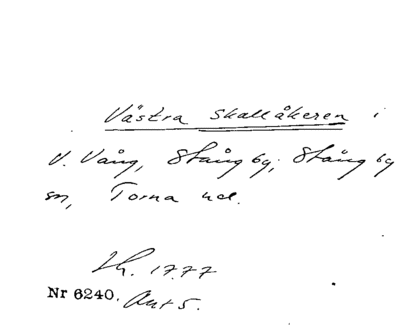 Västra Skallåkeren i
V. Vång, Stångby, Stångby
sn, Torna hd.
Lh. 1777
Nr 6240. Akt 5.